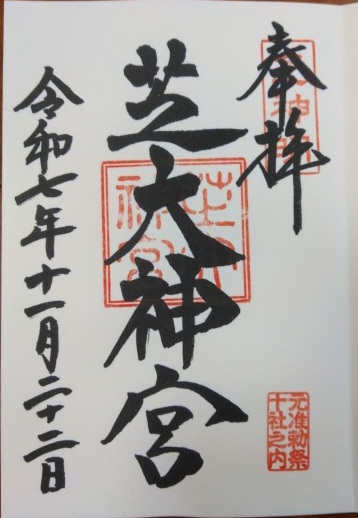 奉拝
芝大神宮
令和七年十一月二十二日
元准勅祭
十社之内